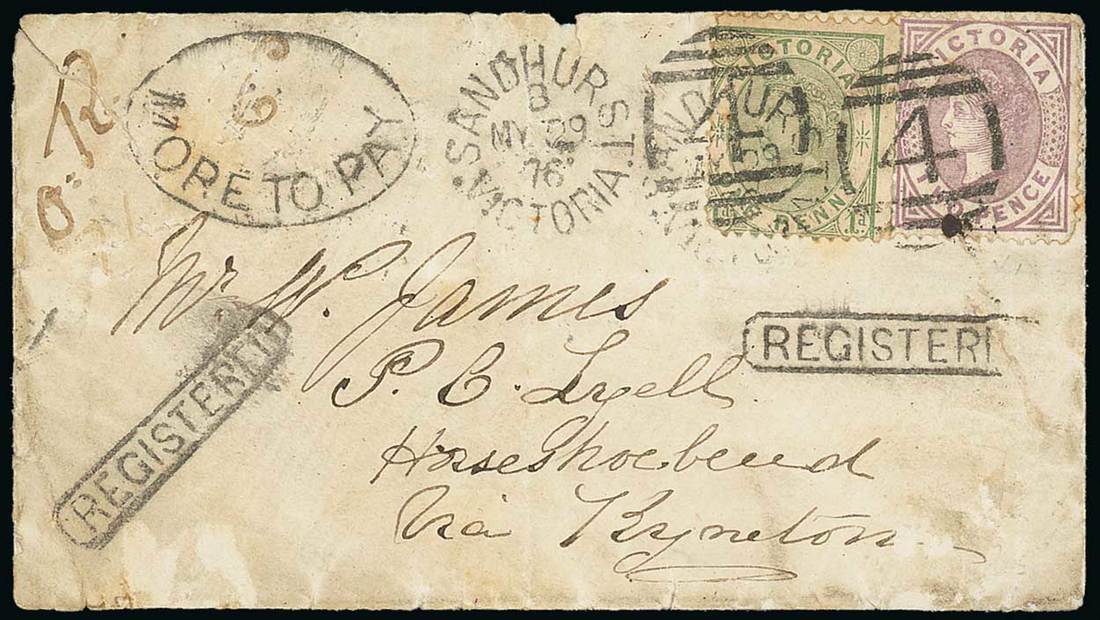 MORE TO PAY
6
SANDHURST
B
MY 29
76
VICTORIA
VICTORIA
ONE PENNY
VICTORIA
TWO PENCE
4
Mr W. James
P. C. Lyell
Horseshoebend
Via Kyneton
REGISTERED
REGISTER